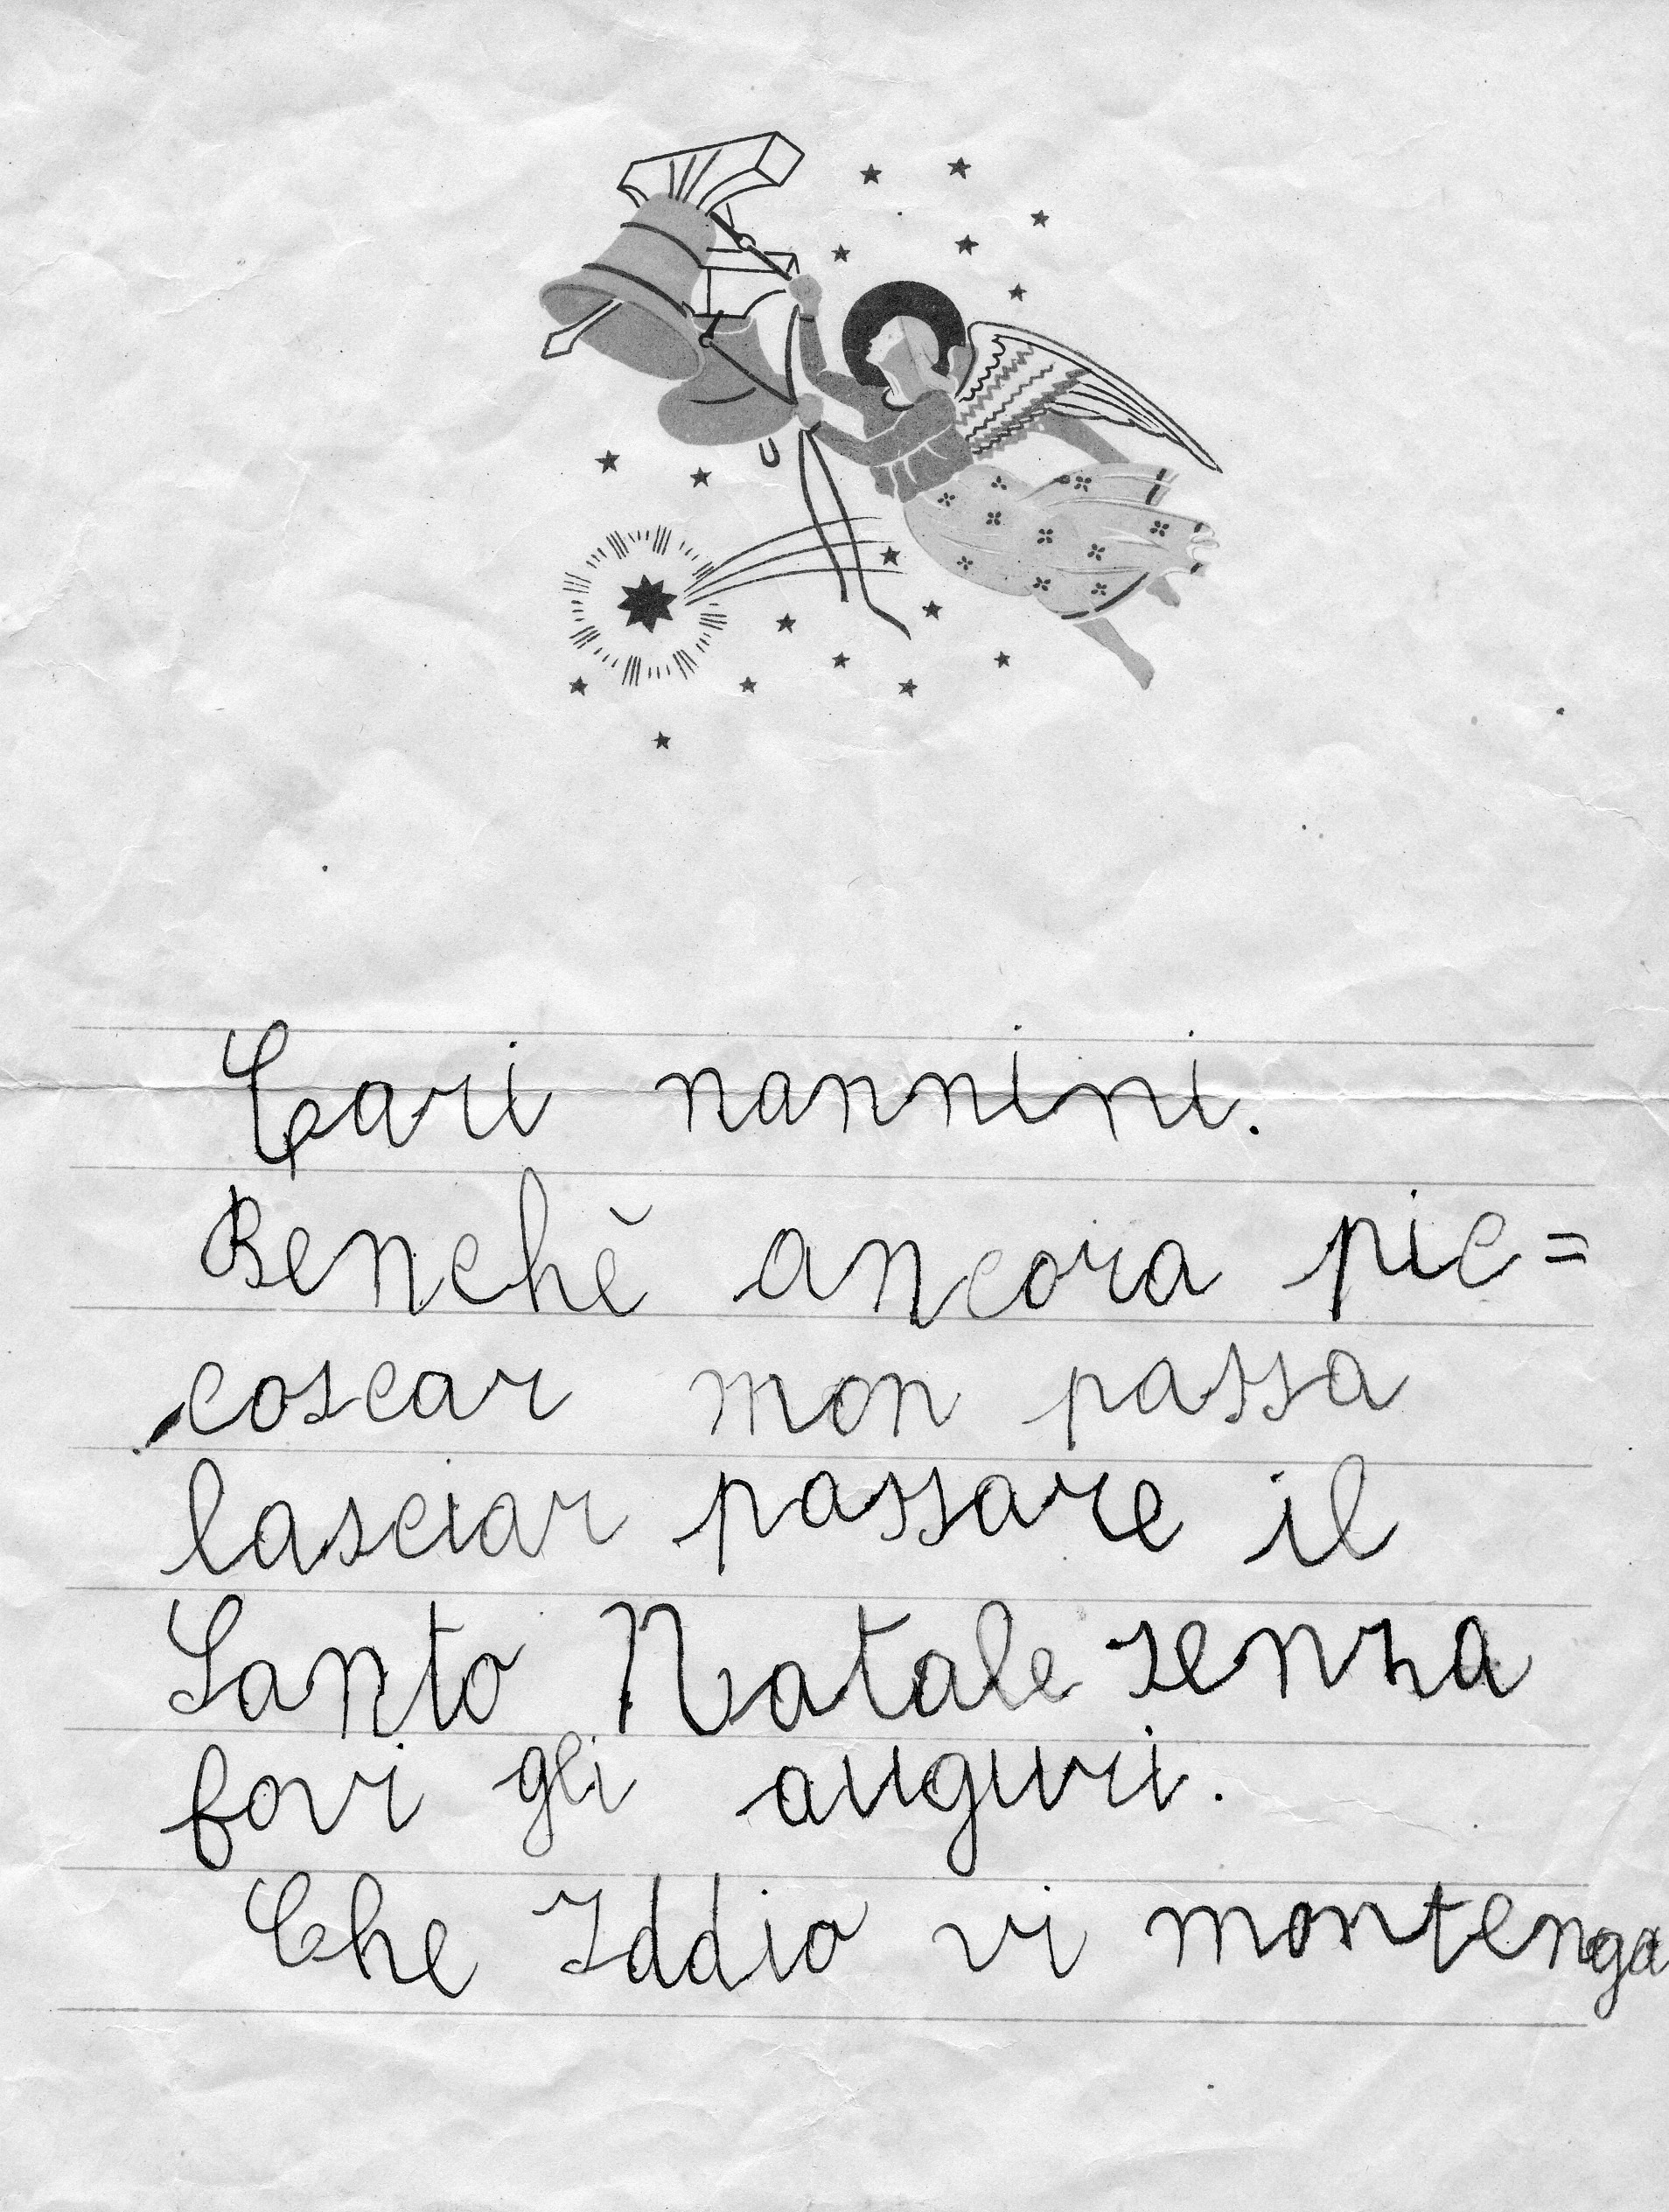 Cari nannini.
Benchè ancora pic=
coscar mon passa
lasciar passare il
Santo Natale senza
fovi gli auguri.
Che Iddio vi montenga